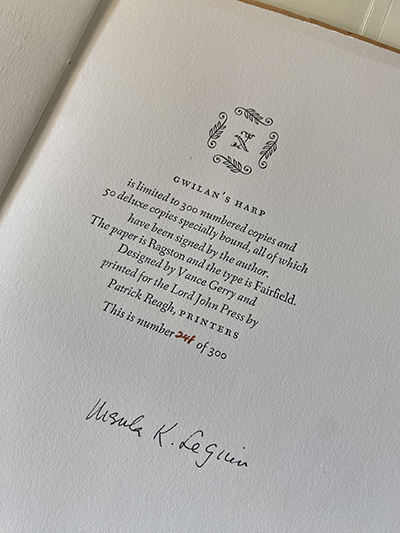 GWILAN'S HARP
is limited to 300 numbered copies and
50 deluxe copies specially bound, all of which
have been signed by the author.
The paper is Ragston and the type is Fairfield.
Designed by Vance Gerry and
printed for the Lord John Press by
Patrick Reagh, PRINTERS
This is number 241 of 300
Ursula K. Le Guin